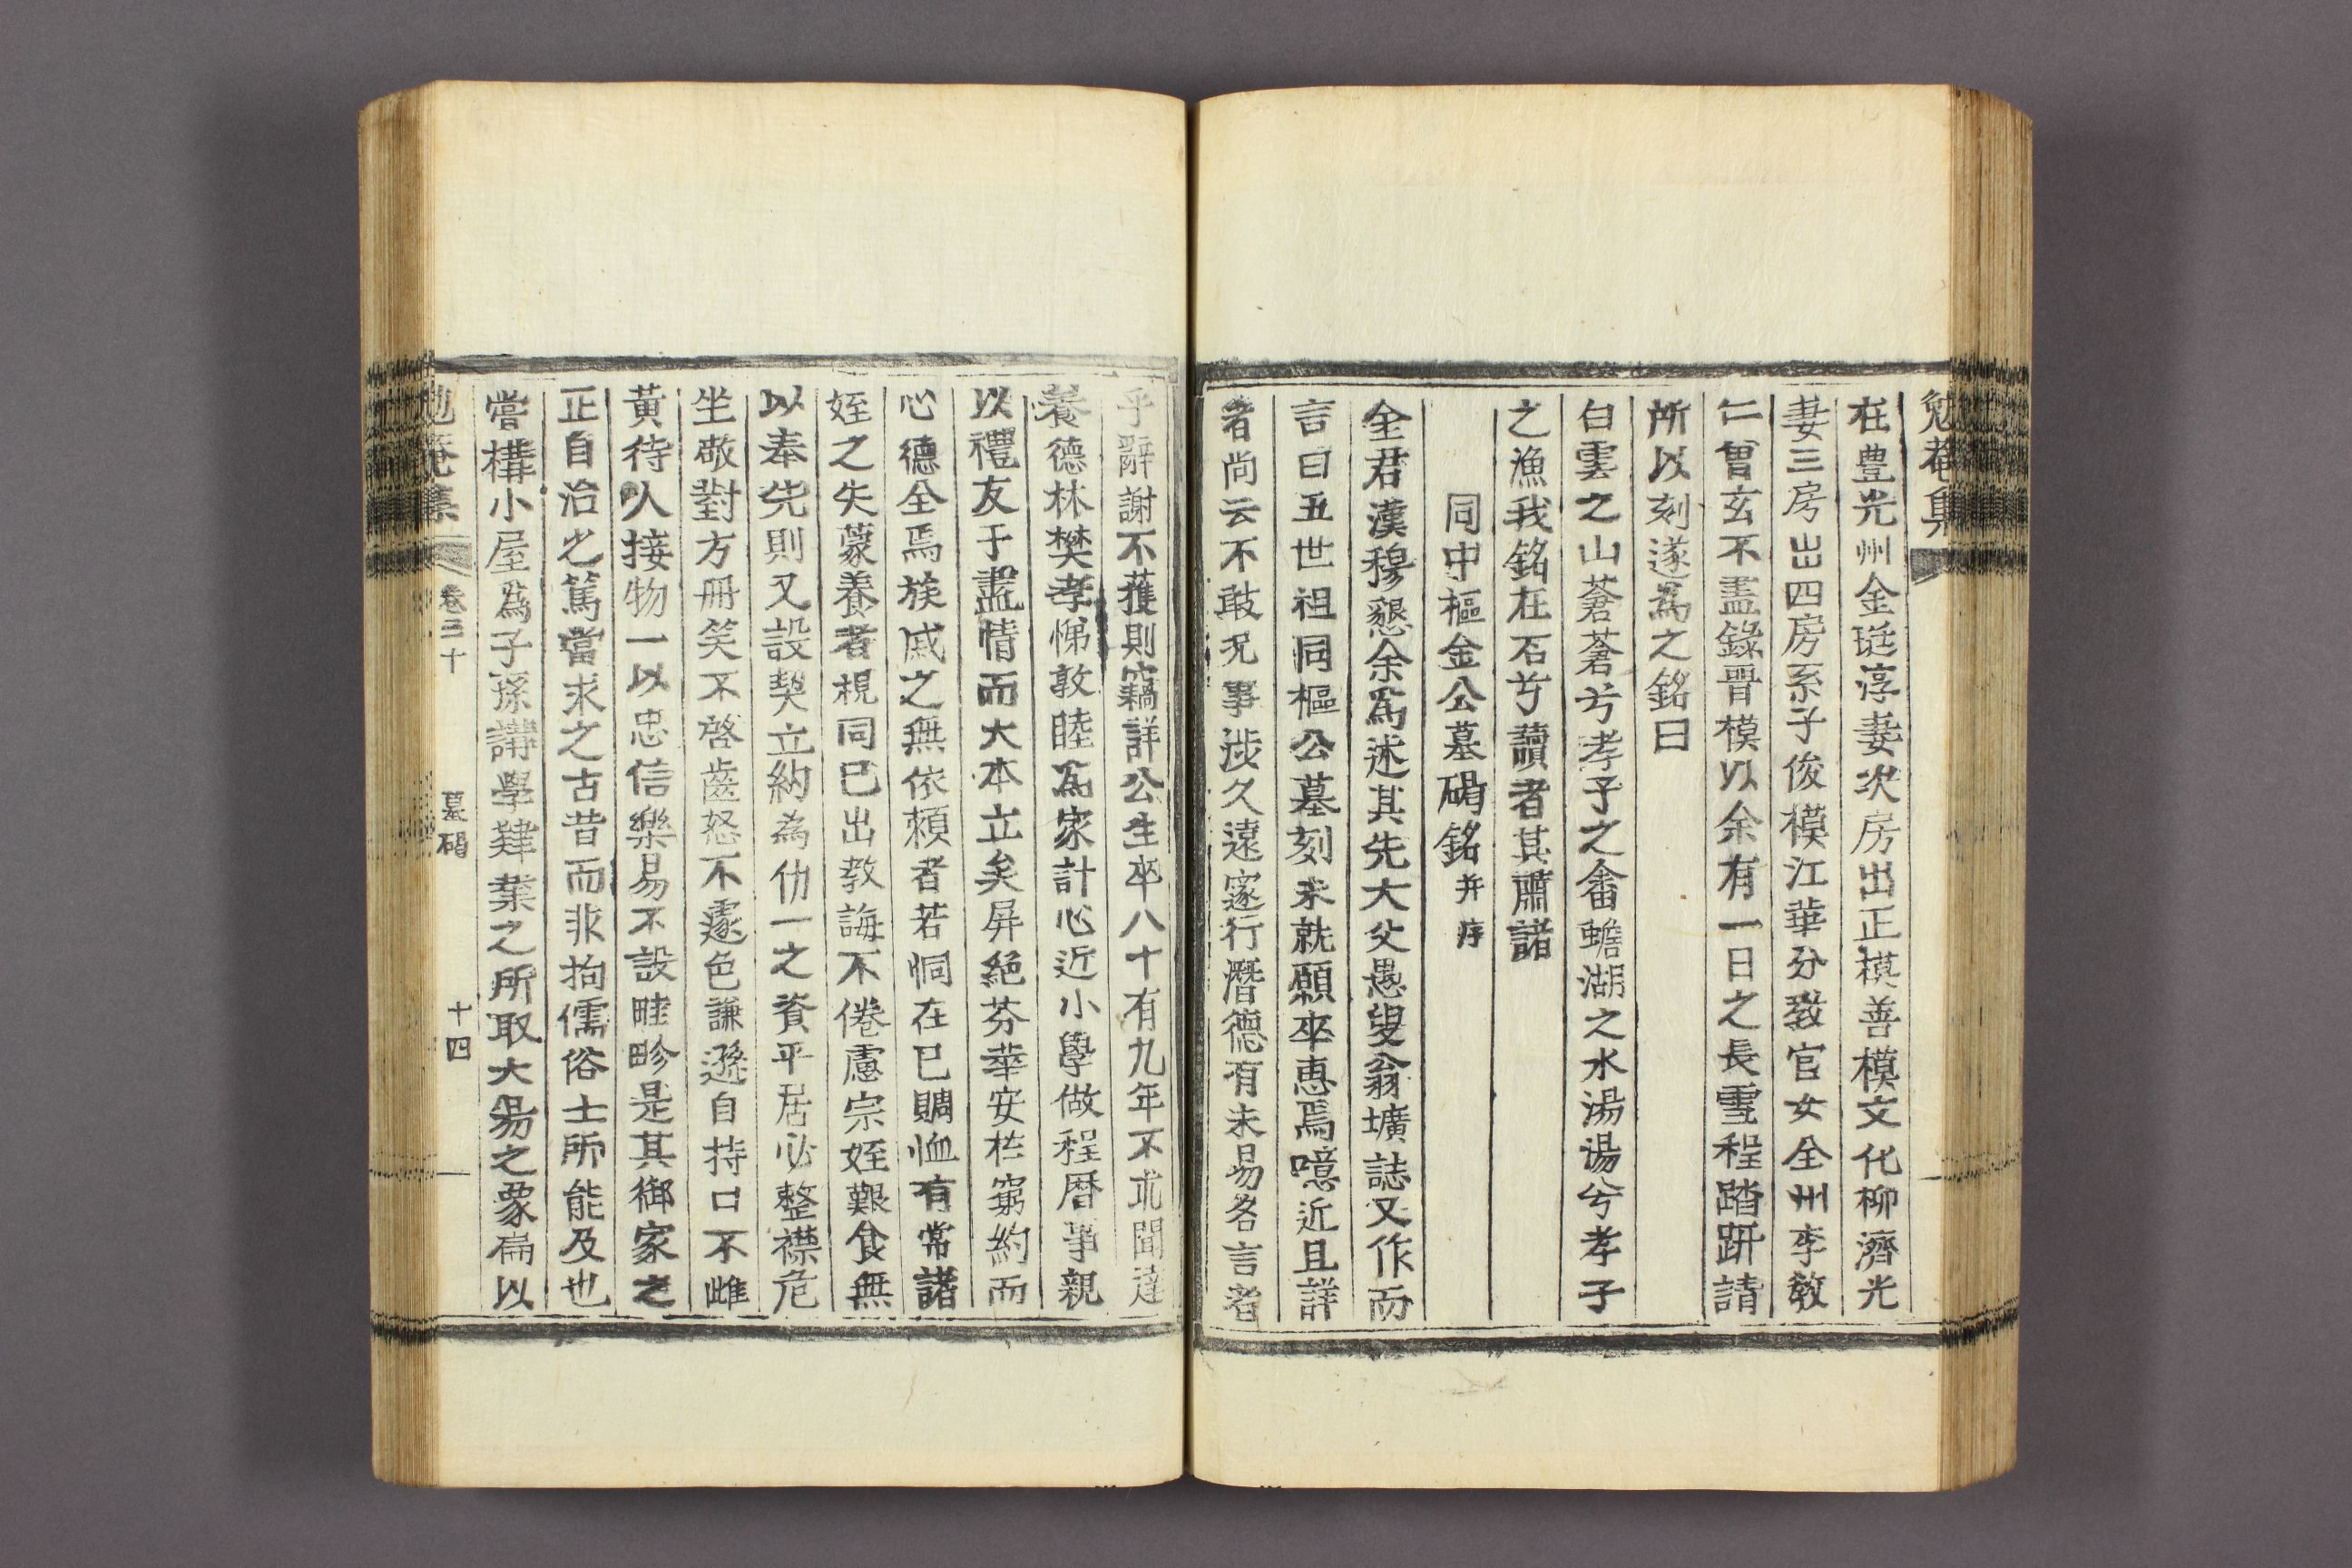 勉菴集
在豊光州金珽淳妻次房出正模善模文化柳濟光
妻三房出四房系子俊模江華分敎官女全州李敎
仁曾玄不盡錄晋模以余有一日之長雪程踏趼請
所以刻遂爲之銘曰
白雲之山蒼蒼兮孝子之畬蟾湖之水湯湯兮孝子
之漁我銘在石兮讀者其肅諸
同中樞金公墓碣銘并序
金君漢穆懇余爲述其先大父愚叟翁壙誌又作而
言曰五世祖同樞公墓刻未就願卒惠焉噫近且詳
者尚云不敢况事涉久遠邃行潛德有未易各言者
乎辭謝不獲則竊詳公生卒八十有九年不求聞達
養德林樊孝悌敦睦爲家計心近小學做程曆事親
以禮友于盡情而大本立矣屏絕芬華安於窮約而
心德全焉族戚之無依賴者若恫在已賙恤有常諸
姪之失蒙養者視同已出敎誨不倦慮宗姪艱食無
以奉先則又設契立約為仂一之資平居必整襟危
坐敬對方冊笑不啓齒怒不遽色謙遜自持口不雌
黃待人接物一以忠信樂易不設畦畛是其御家之
正自治之篤當求之古昔而非拘儒俗士所能及也
嘗構小屋爲子孫講學肄業之所取大易之蒙扁以
勉菴集 卷三十 墓碣 十四